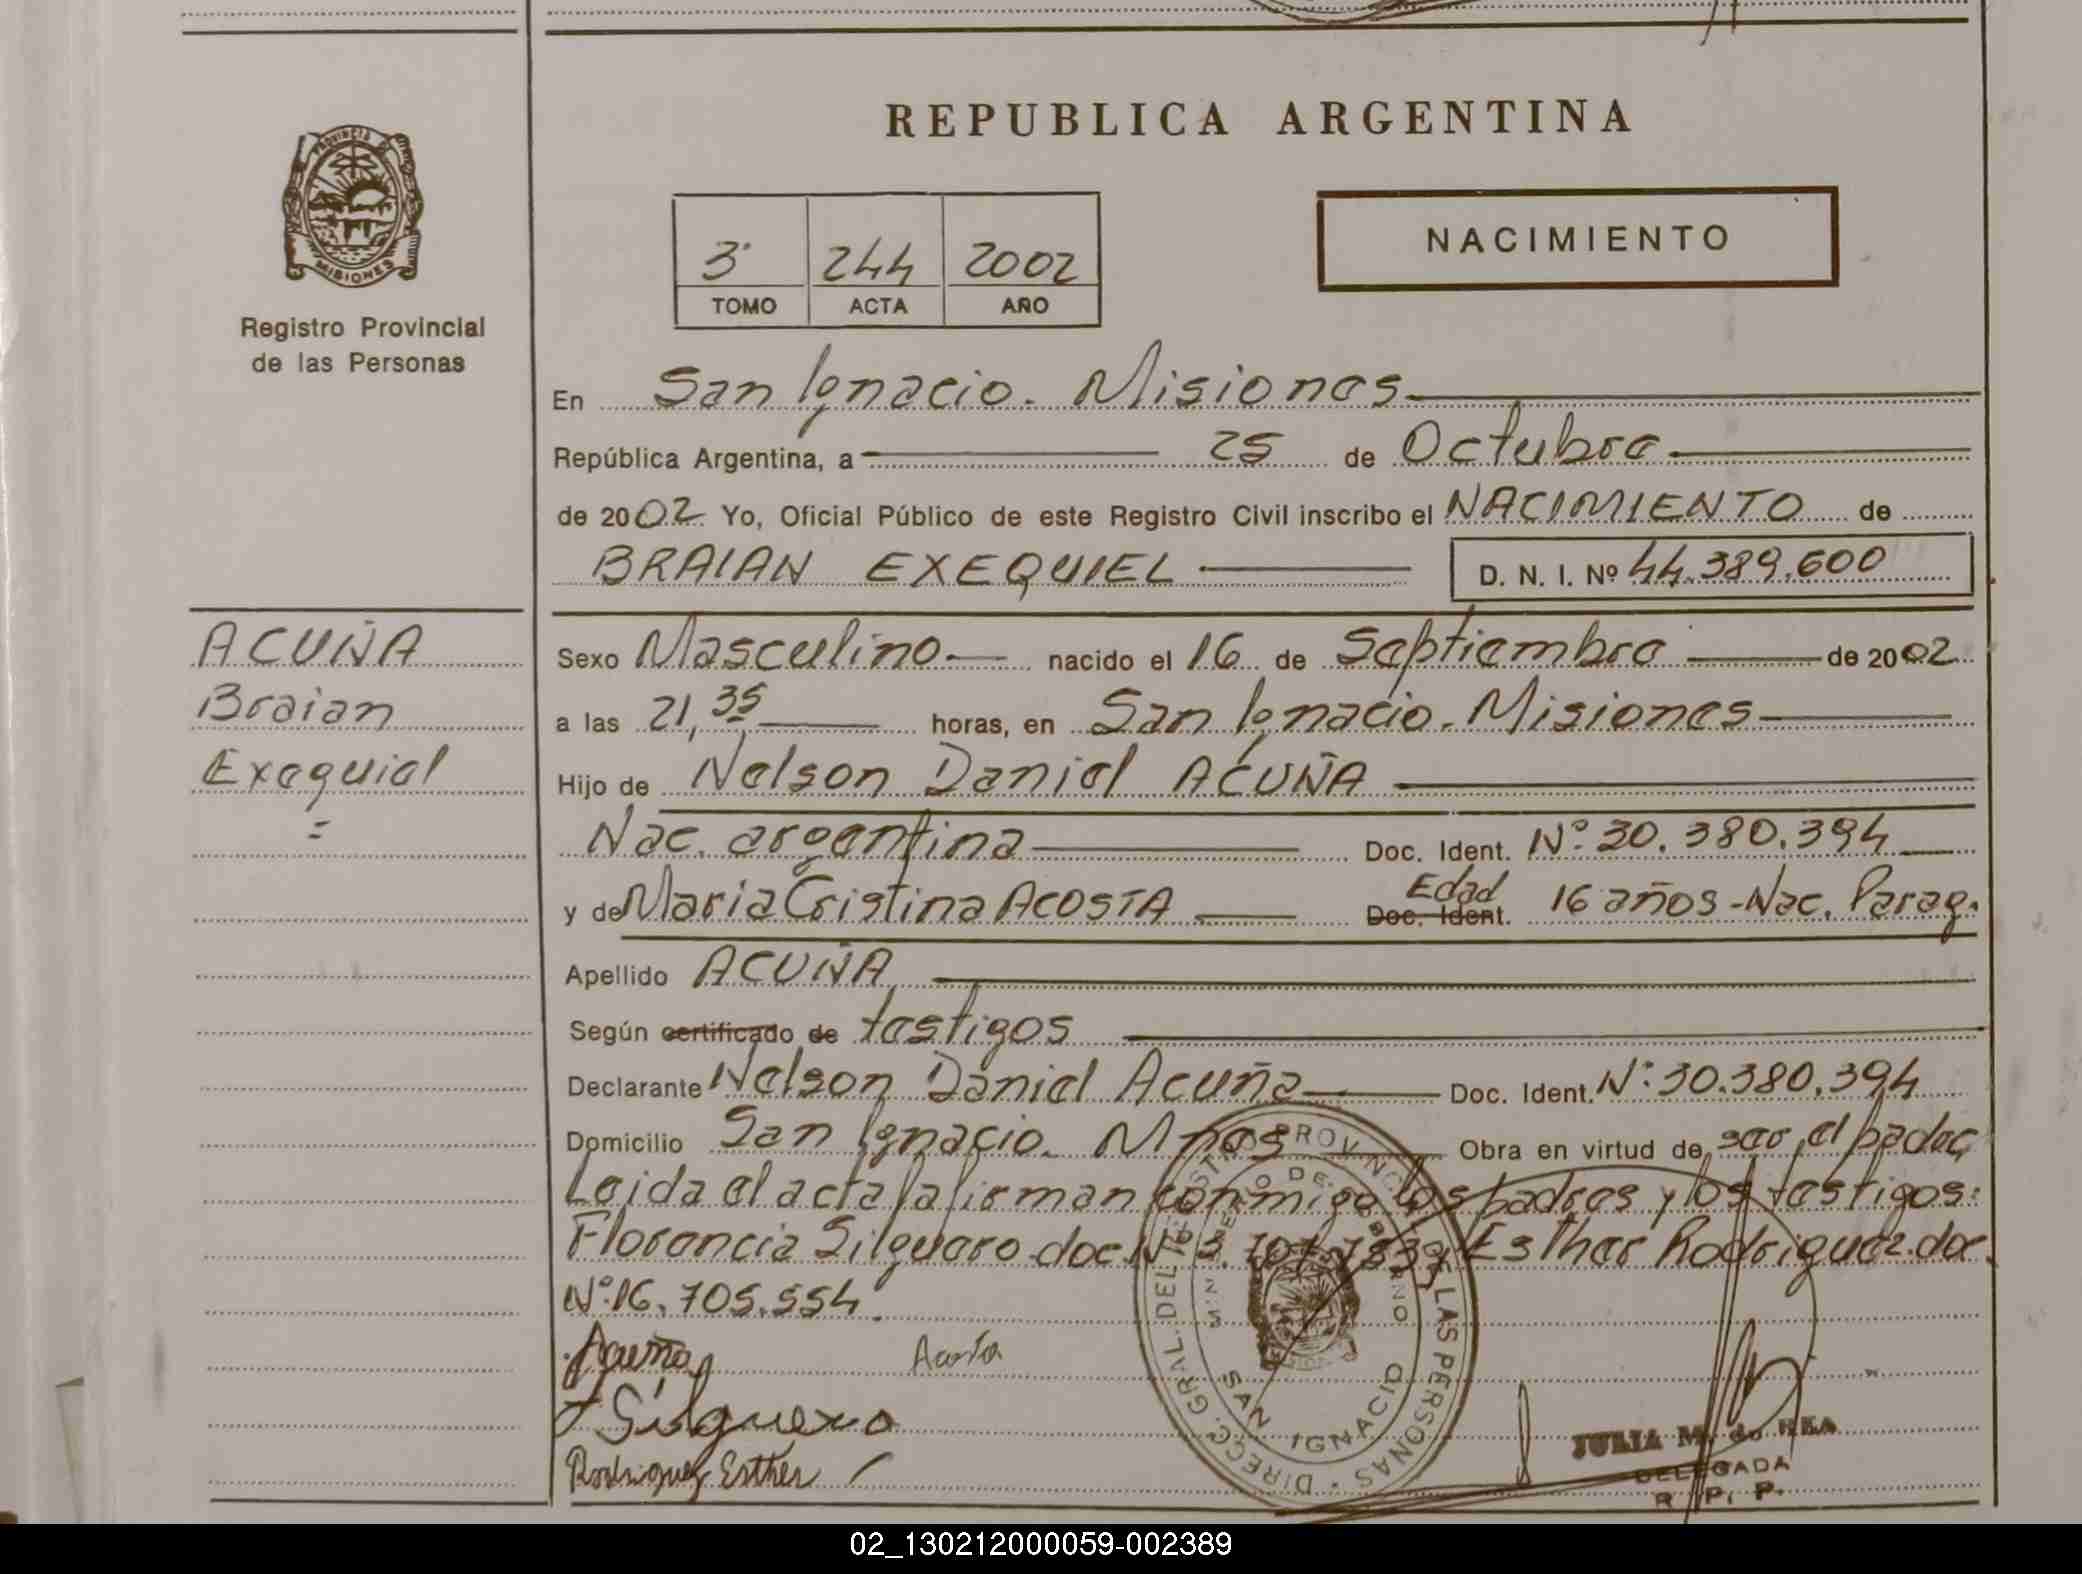 REPUBLICA ARGENTINA
PROVINCIA DE MISIONES
Registro Provincial
de las Personas
3° 244 2002
TOMO ACTA AÑO
NACIMIENTO
En San Ignacio. Misiones
República Argentina, a 25 de Octubre
de 2002. Yo, Oficial Público de este Registro Civil inscribo el NACIMIENTO de
BRAIAN EXEQUIEL D. N. I. Nº 44.389.600
ACUÑA
Braian
Exequiel
=
Sexo Masculino nacido el 16 de Septiembre de 2002
a las 21,35 horas, en San Ignacio. Misiones
Hijo de Nelson Daniel ACUÑA
Nac. argentina Doc. Ident. N°: 30.380.394
y de Maria Cristina ACOSTA Edad Doc. Ident. 16 años - Nac. Parag.
Apellido ACUÑA
Según certificado de testigos
Declarante Nelson Daniel Acuña Doc. Ident. N°: 30.380.394
Domicilio San Ignacio. Mnes Obra en virtud de ser el padre,
Leida el acta la firman conmigo los padres y los testigos:
Florencia Silguero doc. N° Esther Rodriguez. doc.
N°: 16.705.554.
Acuña Acosta
F Silguero
Rodriguez Esther
DIRECC. GRAL. DEL REGISTRO PROVINCIAL DE LAS PERSONAS
MINISTERIO DE GOBIERNO
SAN IGNACIO
JULIA M. de REA
DELEGADA
R. P. P.
02_130212000059-002389